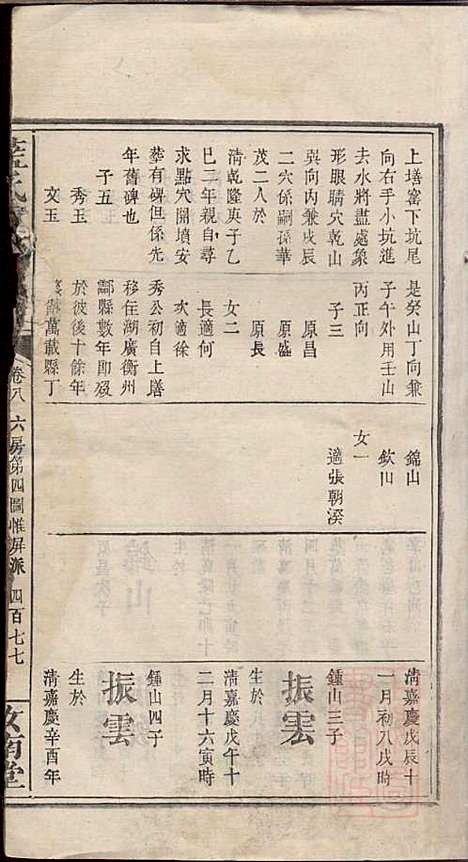 上墡窰下坑尾
向右手小坑進
去水將盡處象
形眼睛穴乾山
巽向內兼戌辰
二穴係嗣孫華
茂二人於
清乾隆庚子乙
巳二年親自尋
求點穴開墳安
葬有碑但係先
年舊碑也
子五
秀玉
文玉
是癸山丁向兼
子午外用壬山
丙正向
子三
原昌
原盛
原長
女二
長適何
次適徐
秀公初自上墡
移住湖廣衡州
酃縣數年即歿
於彼後十餘年
萬載縣丁
錦山
欽川
女一
適張朝溁
清嘉慶戊辰十
一月初八戌時
鍾山三子
振雲
生於
清嘉慶戊午十
二月十六寅時
鍾山四子
振雲
生於
清嘉慶辛酉年
卷八 六房第四圖惟屏派 四百七七